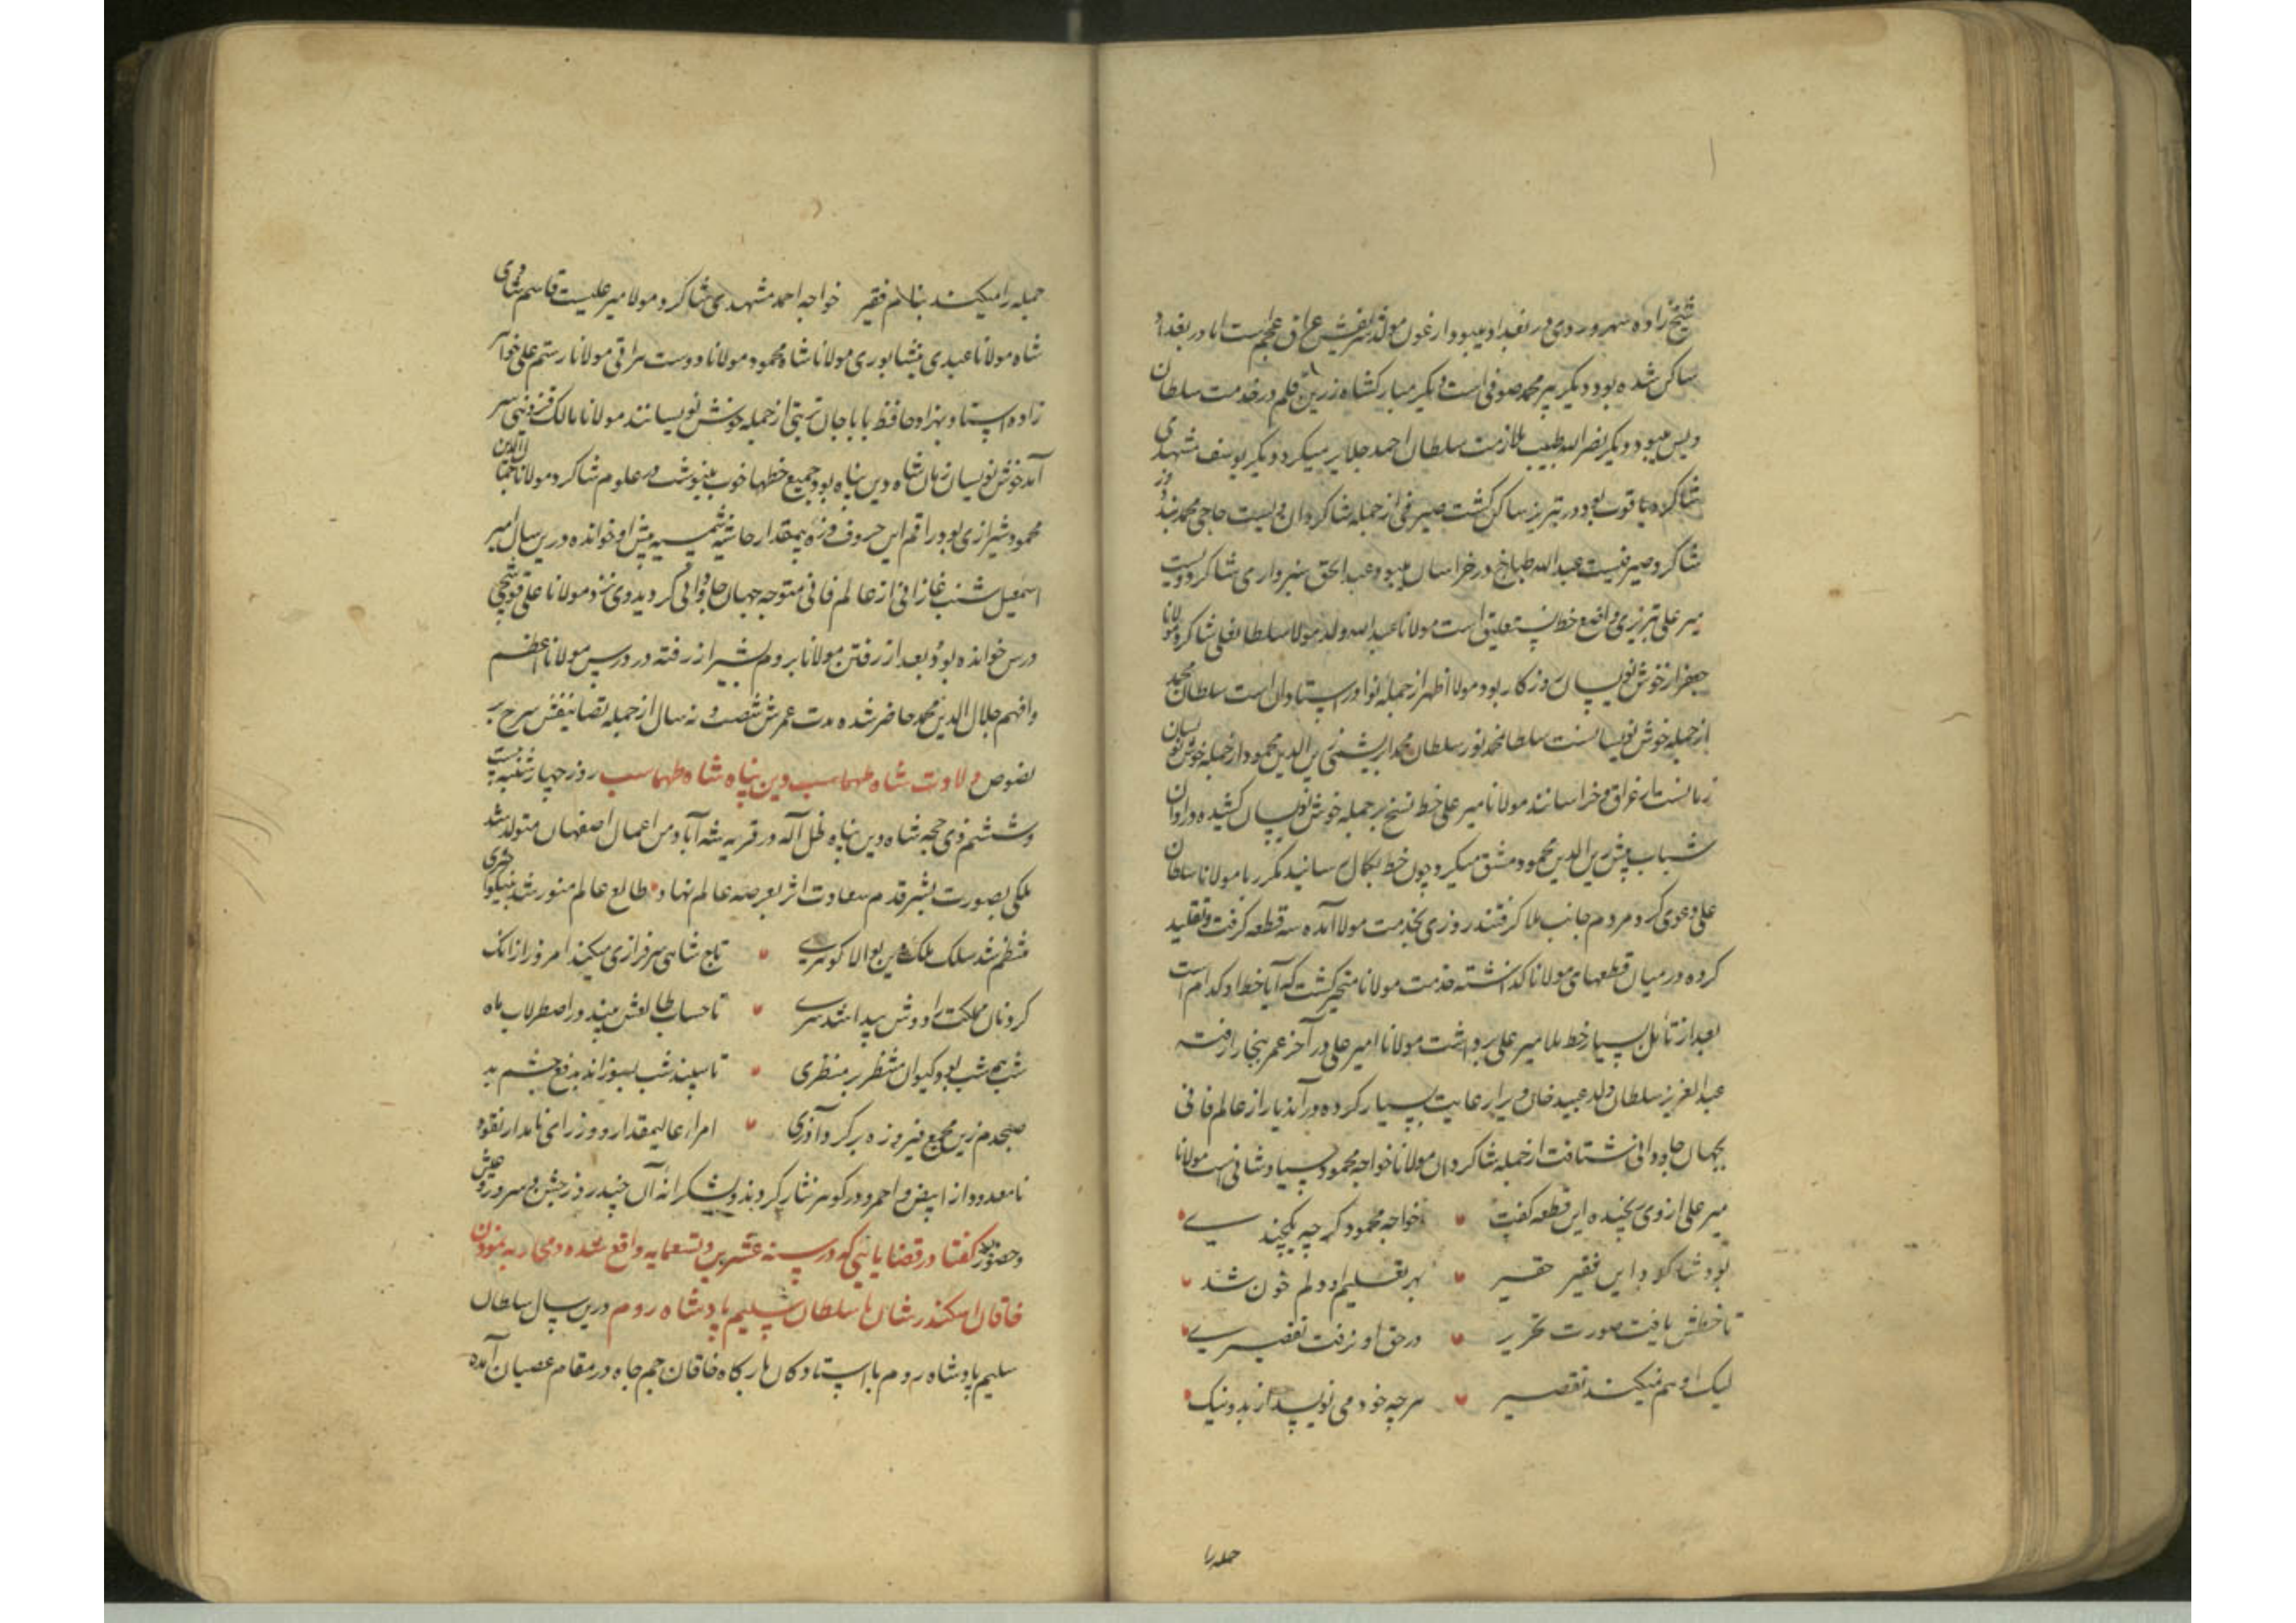 شیخ زاده سهروردی در بغداد میبود ارغون مولد شریفش عراق عجم است اما در بغداد
ساکن شده بود و دیگر پیر محمد صوفی است دیگر مبارکشاه زرین قلم در خدمت سلطان
ویس میبود دیگر نصرالله طبیب ملازمت سلطان احمد جلایر میکرد دیگر یوسف مشهدی
شاکرد یاقوت بود در تبریز ساکن گشت صیرفی از جمله شاکردان ویست حاجی محمد
شاکرد صیرفیست عبدالله طباخ در خراسان میبود عبدالحق سبزواری شاکرد ویست
میر علی تبریزی واضع خط نستعلیق است مولانا عبدالله ولد مولانا سلطانعلی شاکرد مولانا
جعفر از خوش نویسان روزکار بود مولانا اظهر از جمله نوادر استادان است سلطان محمد
از جمله خوش نویسانست سلطانمحمد نور سلطان محمد ابریشمی زین الدین محمود از جمله خوش نویسان
عراق و خراسانند مولانا میر علی خط نسخ بر جمله خوش نویسان کشیده در اوان
شباب پیش زین الدین محمود مشق میکرد چون خط بکمال رسانید مکرر با مولانا سلطان
علی دعوی کرد مردم جانب ملا کرفتند روزی بخدمت مولانا آمده سه قطعه کرفت و تقلید
کرده در میان قطعهای مولانا کذاشته خدمت مولانا متحیر گشت که آیا خط او کدام است
بعد از تامل بسیار خط ملا میر علی برداشت مولانا امیر علی در آخر عمر ببخارا رفته
عبدالعزیز سلطان ولد عبید خان ویرا رعایت بسیار کرده در آن دیار از عالم فانی
بجهان جاودانی شتافت از جمله شاکردان مولانا خواجه محمود مولانا
میر علی از وی رنجیده این قطعه گفت خواجه محمود کرچه یکچندی
بود شاکرد این فقیر حقیر بهر تعلیم او دلم خون شد
تا خطش یافت صورت تحریر در حق او نرفت تقصیری
لیک او هم نمیکند تقصیر هرچه خود می نویسد از بد و نیک
جمله را
جمله را میکند بنام فقیر خواجه احمد مشهدی شاکرد مولانا میر علیست قاسم شادی
شاه مولانا عبدی نیشابوری مولانا شاه محمود مولانا دوست هراتی مولانا رستم علی خواهر
زاده استاد بهزاد حافظ باباجان تربتی از جمله خوش نویسانند مولانا مالک قزوینی سر
آمد خوش نویسان زمان شاه دین پناه بود جمیع خطها خوب مینوشت در علوم شاکرد مولانا جمال الدین
محمود شیرازی بود راقم این حروف بمقدار حاشیه شمسیه پیش او خوانده درین سال امیر
اسمعیل شنب غازانی از عالم فانی متوجه جهان جاودانی کردید وی نزد مولانا علی قوشچی
درس خوانده بود بعد از رفتن مولانا بروم بشیراز رفته در درس مولانا اعظم
وافهم جلال الدین محمد حاضر شده مدت عمرش شصت و نه سال از جمله تصانیفش شرح بر
نصوص ولادت شاه طهماسب دین پناه شاه طهماسب روز چهارشنبه بیست
و ششم ذی حجه شاه دین پناه ظل اله در قریه شه آباد من اعمال اصفهان متولد شد
ملکی بصورت بشر قدم سعادت اثر بعرصه عالم نهاد طالع عالم منور شد بنیکو اختری
منتظم شد سلک ملک دین بوالا گوهری تاج شاهی سرفرازی میکند امروز از آنک
کرد نان مملکت را دوش پیدا شد سری تا حساب طالعش بیند در اصطرلاب ماه
شب همه شب بود کیوان منتظر بر منظری تا سپند شب بسوزاند بدفع چشم بد
صبحدم زین مجمع فیروزه بر کرد آذری امراء عالیمقدار و وزرای نامدار نقود
نامعدود از ابیض و احمر و در و کوهر نثار کردند و بشکرانه آن چند روز جشن و سرور و عیش
و حضور کفتار در قضایائی که در سنه عشرین و تسعمایه واقع شده و محاربه نمودن
خاقان اسکندر شان با سلطان سلیم پادشاه روم درین سال سلطان
سلیم پادشاه روم با ایستادکان بارکاه خاقان جمجاه در مقام عصیان آمده